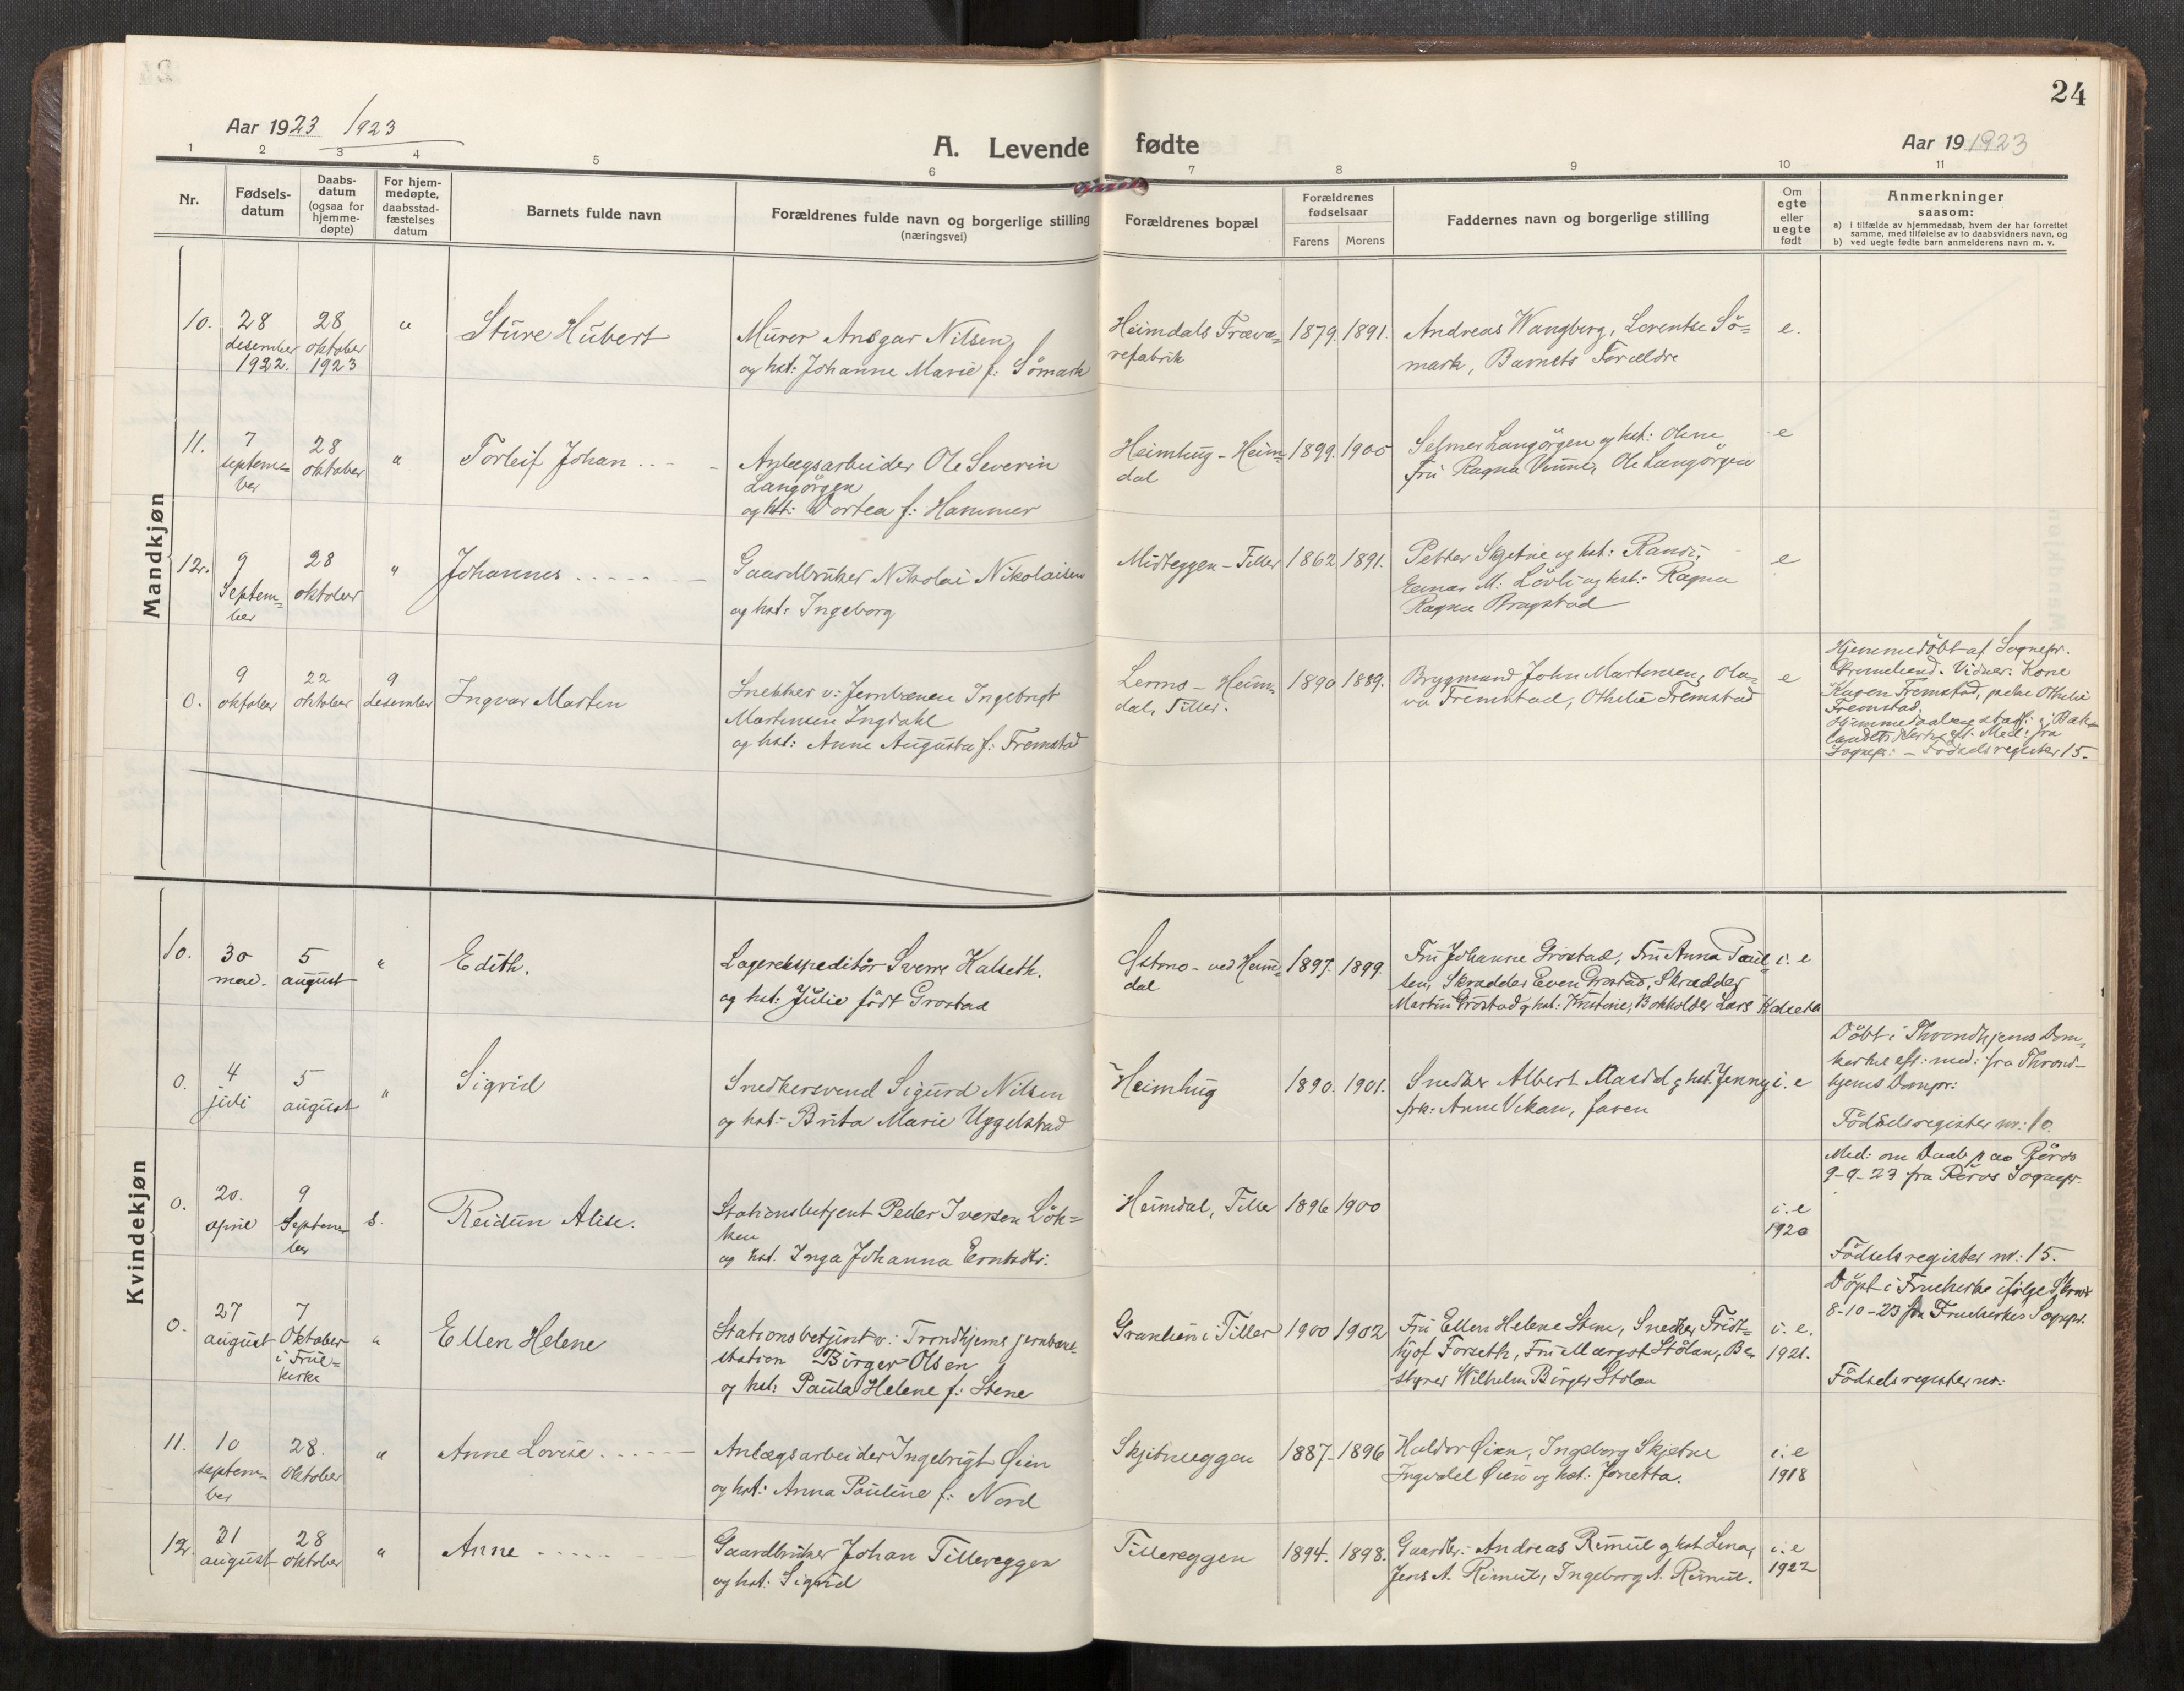 24
Aar 1923 1923
A. Levende fødte
Aar 19 1923
1 2 3 4 5 6 7 8 9 10 11
Nr.
Fødsels-
datum
Daabs-
datum
(ogsaa for
hjemme-
døpte)
For hjem-
medøpte,
daabsstad-
fæstelses
datum
Barnets fulde navn
Forældrenes fulde navn og borgerlige stilling
(næringsvei)
Forældrenes bopæl
Forældrenes
fødselsaar
Farens Morens
Faddernes navn og borgerlige stilling
Om
egte
eller
uegte
født
Anmerkninger
saasom:
a) i tilfælde av hjemmedaab, hvem der har forrettet
samme, med tilføielse av to daabsvidners navn, og
b) ved uegte fødte barn anmelderens navn m. v.
Mandkjøn
10.
28
desember
1922.
28
oktober
1923
"
Sture Hubert
Murer Ansgar Nilsen,
og hst: Johanne Marie f: Sömark
Heimdals Træva=
refabrik
1879. 1891.
Andreas Wangberg, Lorentse Sö=
mark, Barnets Forældre
e.
11.
7
septem=
ber
28
oktober
"
Torleif Johan
Anlægsarbeider Ole Severin
Langörgen
og hst: Dortea f: Hammer
Heimhug - Heim=
dal
1899. 1900
Selmer Langörgen og hst:
Fru Ragna Vinne, Ole Langörgen
e
12.
9
Septem=
ber
28
oktober
"
Johannes
Gaardbruker Nikolai Nikolaisen
og hst: Ingeborg
Midteggen - Tiller
1862 1891.
Petter Skjetne og hst: Randi,
Einar M. Lövli og hst: Ragna
Ragna Bragstad
e
0.
9
oktober
22
oktober
9
desember
Ingvar Martin
Snekker v: Jernbanen Ingebrigt
Martinsen Ingdahl
og hst: Anne Augusta f: Fremstad
Lermo - Heim=
dal, Tiller.
1890 1889.
Brygmand John Martinsen, Ola=
va Fremstad, Othelie Fremstad
e
Hjemmedöbt af Sognepr.
Vidner: Kone
Karen Fremstad, Othelie
Fremstad.
Hjemmedaaben stadf: i Bak=
landets Kirke eft. Med: fra
Sognepr: - Födselsregister 15.
Kvindekjøn
10.
30
mai.
5
august
"
Edith.
Lagerekspeditör Sverre Kalseth.
og hst: Julie född Grostad
Östmo - ved Heim=
dal
1897. 1899.
Fru Johanne Grostad, Fru Anna Paul=
sen, Skrædder Even Grostad, Skrædder
Martin Grostad og hst: Kristine, Bokholder Lars Kalseth
i. e
0.
4
juli
5
august
"
Sigrid
Snedkersvend Sigurd Nilsen
og hst: Brita Marie Uggelstad
Heimhug
1890. 1901.
Snedker Albert og hst. Jenny
frk: Anne Vikan, faren
i. e
Döbt i Throndhjems Dom=
kirke eft: med: fra Thrond=
hjems Dompr:
Födselsregister nr: 10.
0.
20.
april
9
Septem=
ber
s.
Reidun Alise.
Stationsbetjent Peder Iversen Lök=
ken
og hst. Inga Johanna Erntsdtr.
Heimdal, Tiller
1896 1900
i. e
1920
Med: om Daab paa Röros
9-9-23 fra Röros Sognepr.
Födselsregister nr: 15.
0.
27
august
7
Oktober
i Frue=
kirke
"
Ellen Helene
Stationsbetjent v: Trondhjems jernbane=
station Birger Olsen
og hst: Paula Helene f: Stene
Granheim i Tiller
1900 1902
Fru Ellen Helene Stene, Snedker Fridt=
hjof Forseth, Fru Margot Stölan, Be=
styrer Wilhelm Birger Stolan
i. e.
1921.
Döpt i Fruekirke ifölge
8-10-23 fra Fruekirkes Sognepr.
Födselsregister nr:
11.
10
septem=
ber
28.
oktober
"
Anne Lovise
Anlægsarbeider Ingebrigt Öien
og hst: Anna Pauline f: Nord
Skjetneeggen
1887. 1896
Haldor Öien, Ingeborg Skjetne
Ingvald Öien og hst: Jonetta.
i. e
1918
12.
31
august
28
oktober
"
Anne
Gaardbruker Johan Tillereggen
og hst: Sigrid
Tillereggen
1894. 1898.
Gaardbr: Andreas Rimul og hst Lina,
Jens A. Rimul, Ingeborg A. Rimul.
i. e
1922